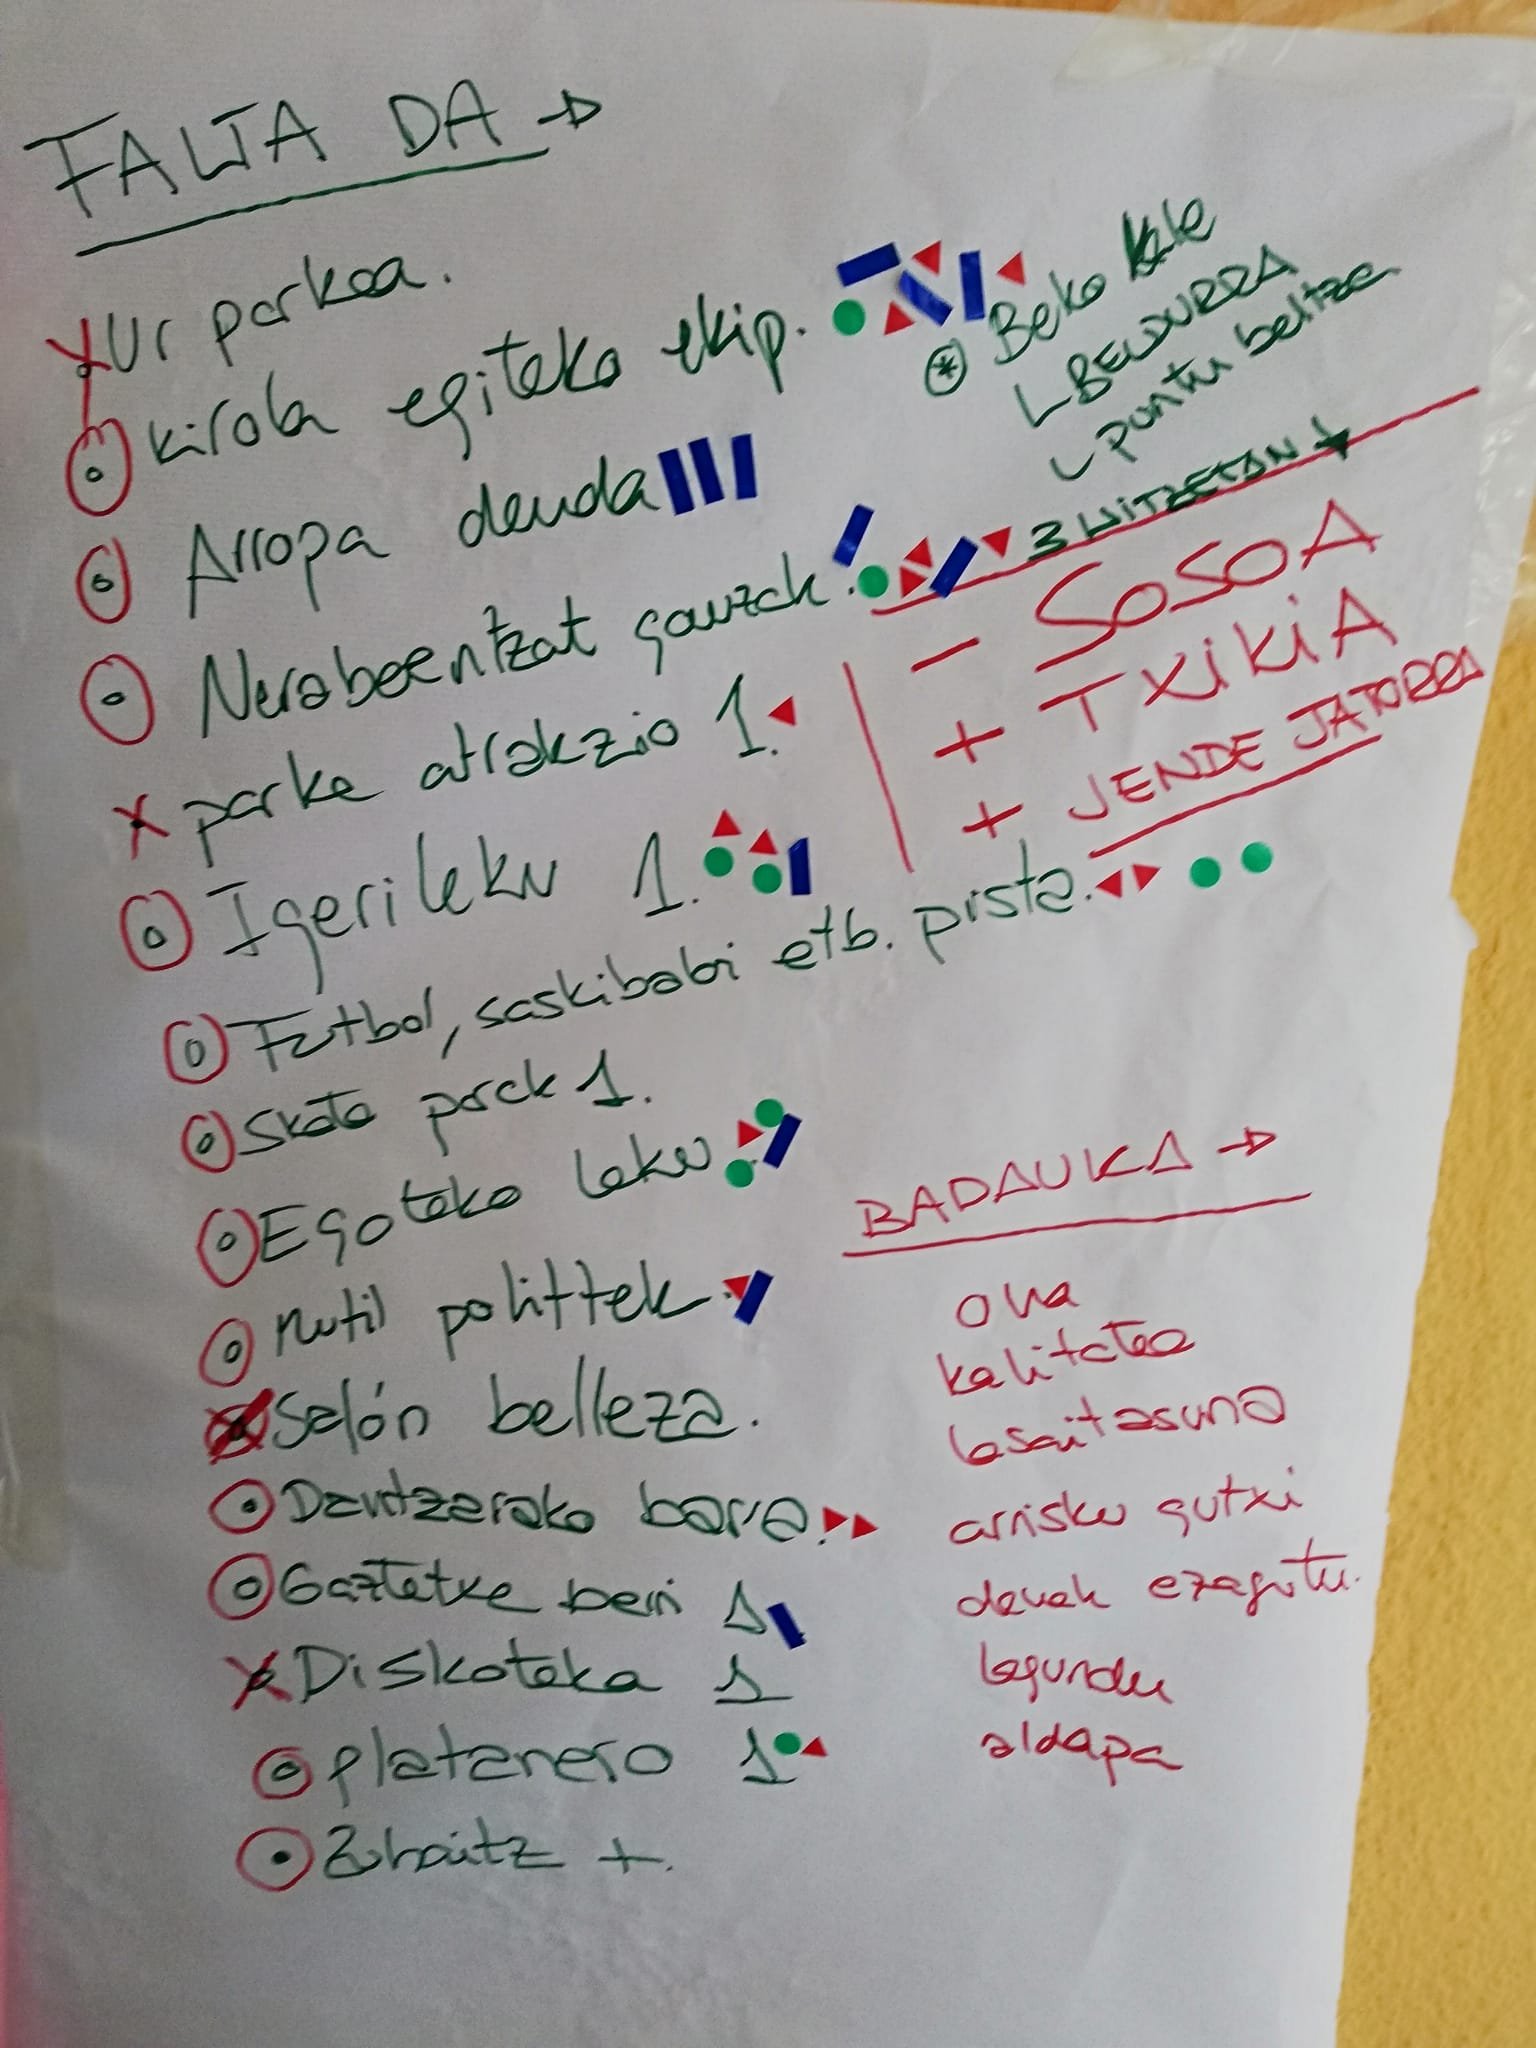 FALTA DA →
Ur parkea.
kirola egiteko ekip.
Arropa denda
Nerabeentzat gauzak.
parke atrakzio 1.
Igerileku 1.
Futbol, saskibaloi etb. pista.
Skate parck 1.
Egoteko leku.
Mutil polittek.
Salón belleza.
Dantzarako barra.
Gaztetxe berri 1
Diskoteka 1
platanero 1
Zuhaitz +.
* Beko kale
BELDURRA
puntu beltza
3 HITZETAN ↓
- SOSOA
+ TXIKIA
+ JENDE JATORRA
BADAUKA →
Ona
kalitatea
lasaitasuna
arrisku gutxi
denak ezagutu.
lagundu
aldapa